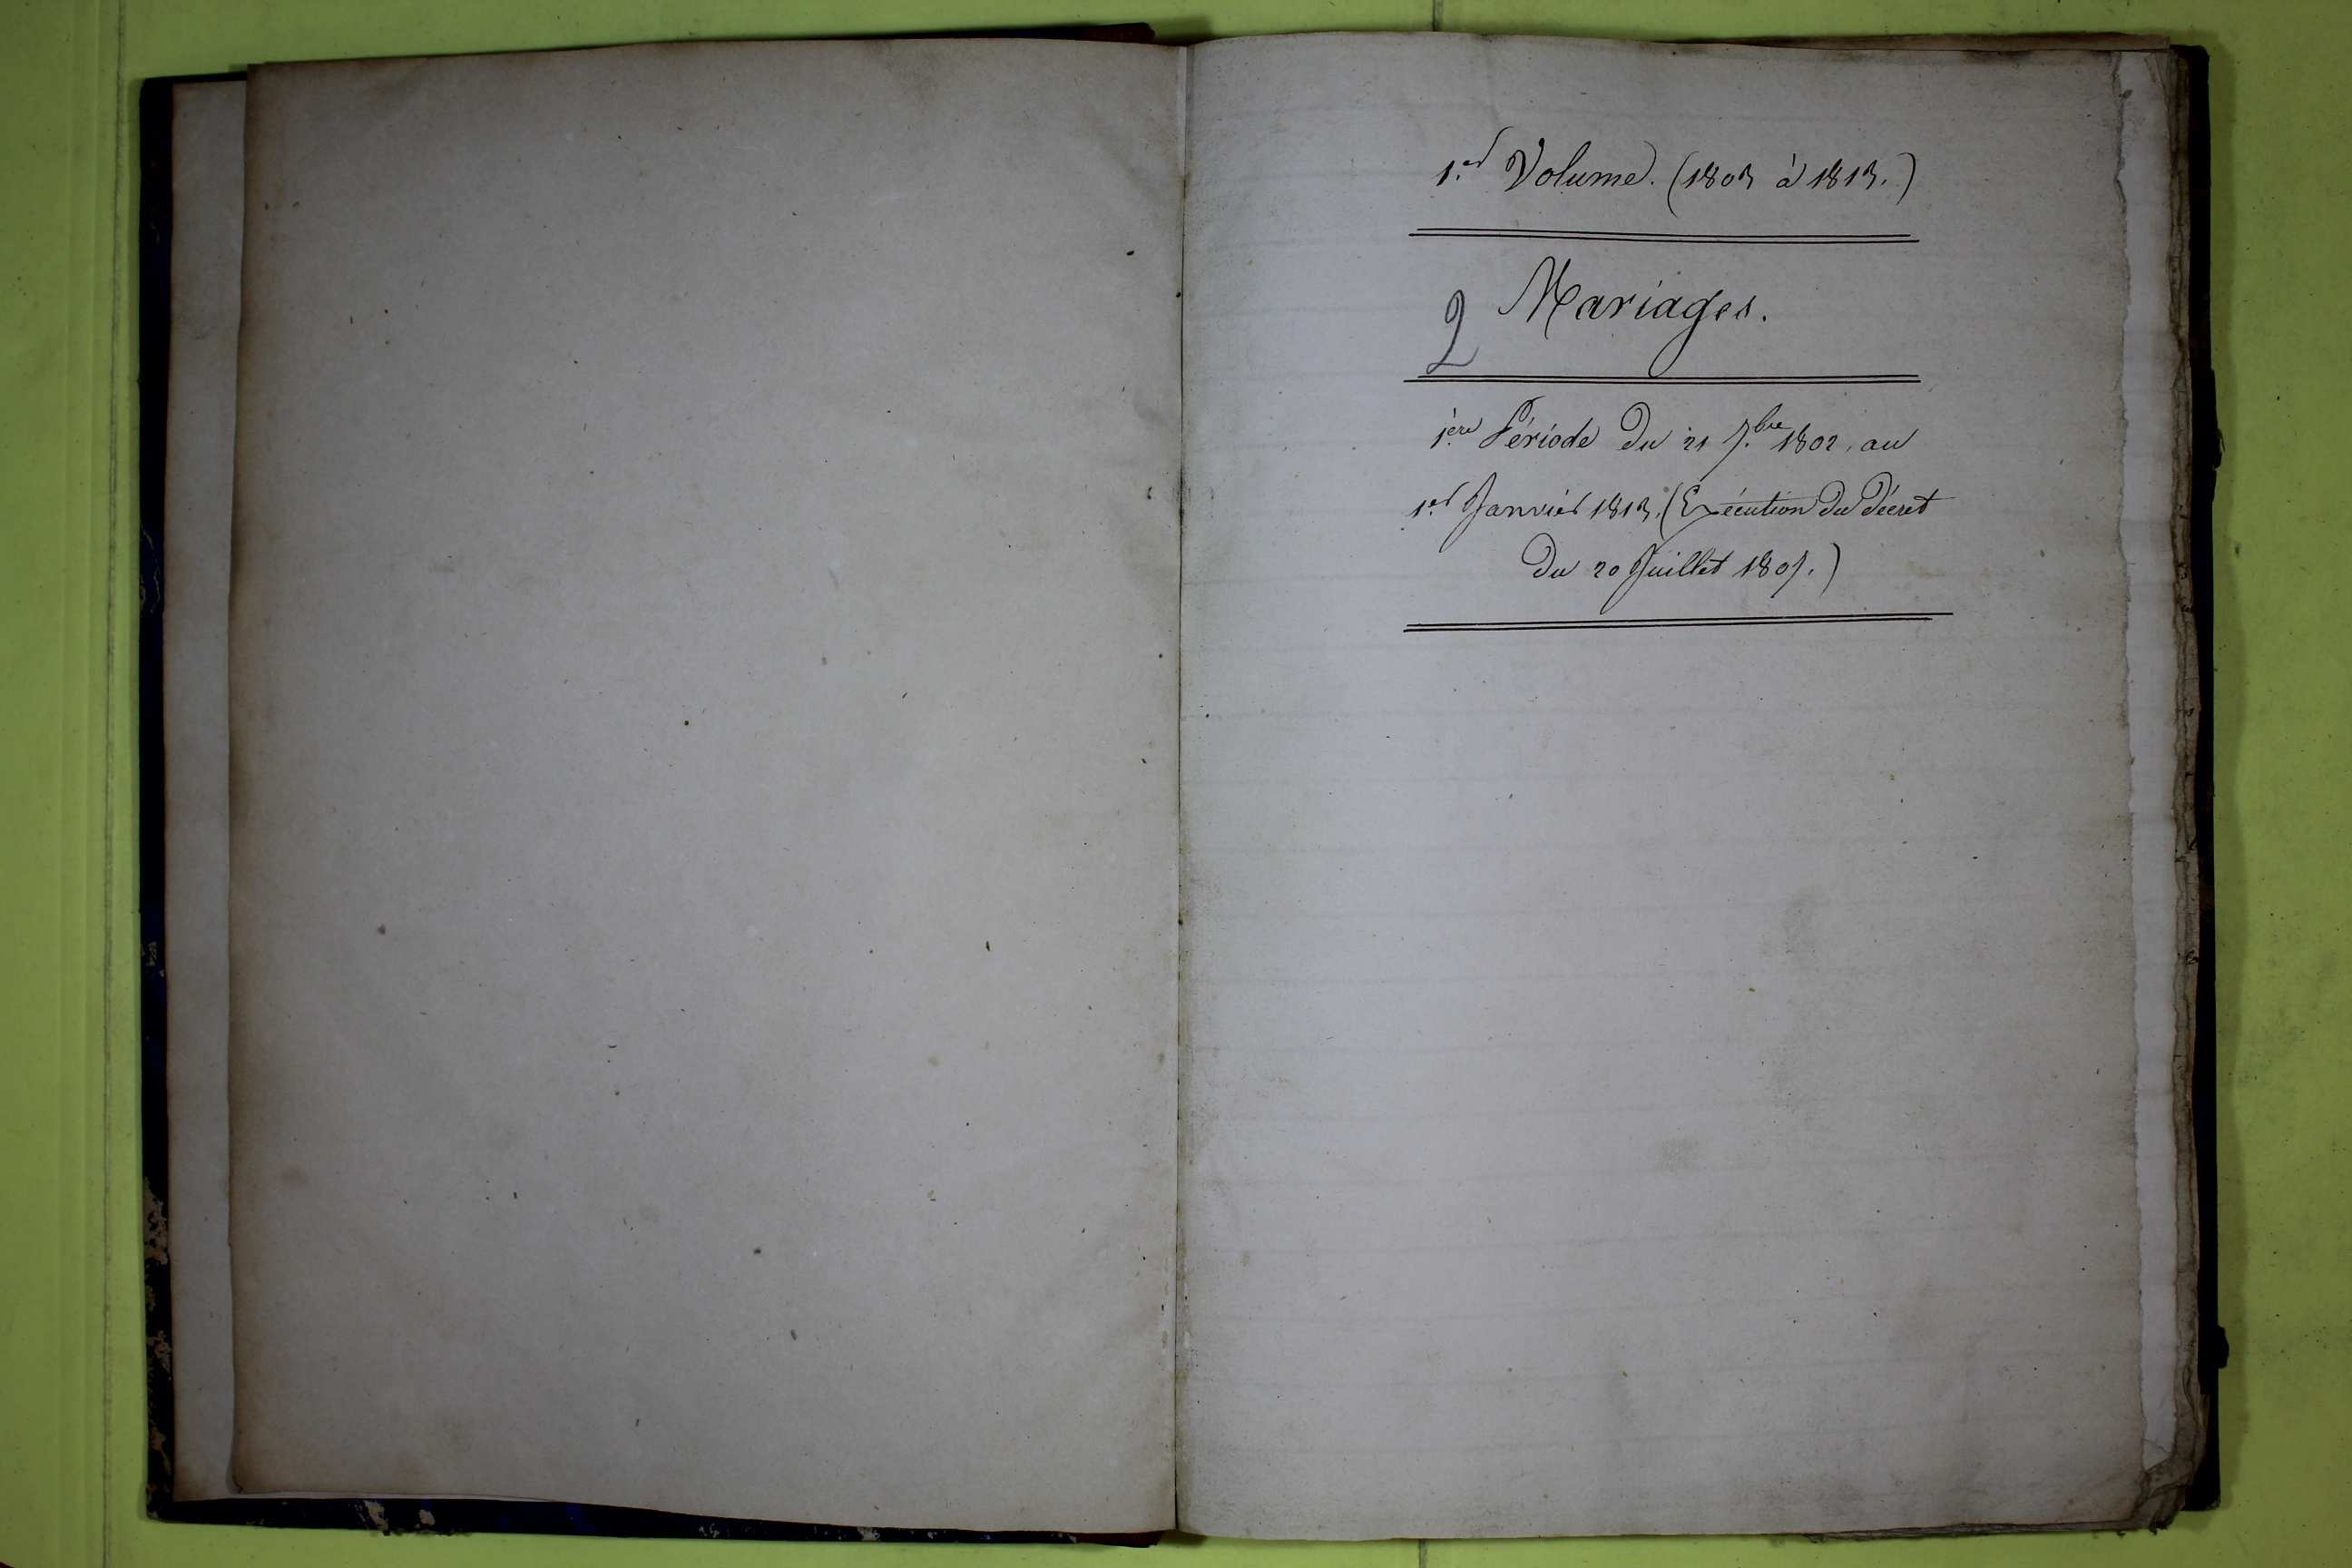 1.er Volume. (1803 à 1813.)
2 Mariages.
1ère Période du 21 7.bre 1802, au
1.er Janvier 1813. (Exécution du Décret
du 20 Juillet 1807.)